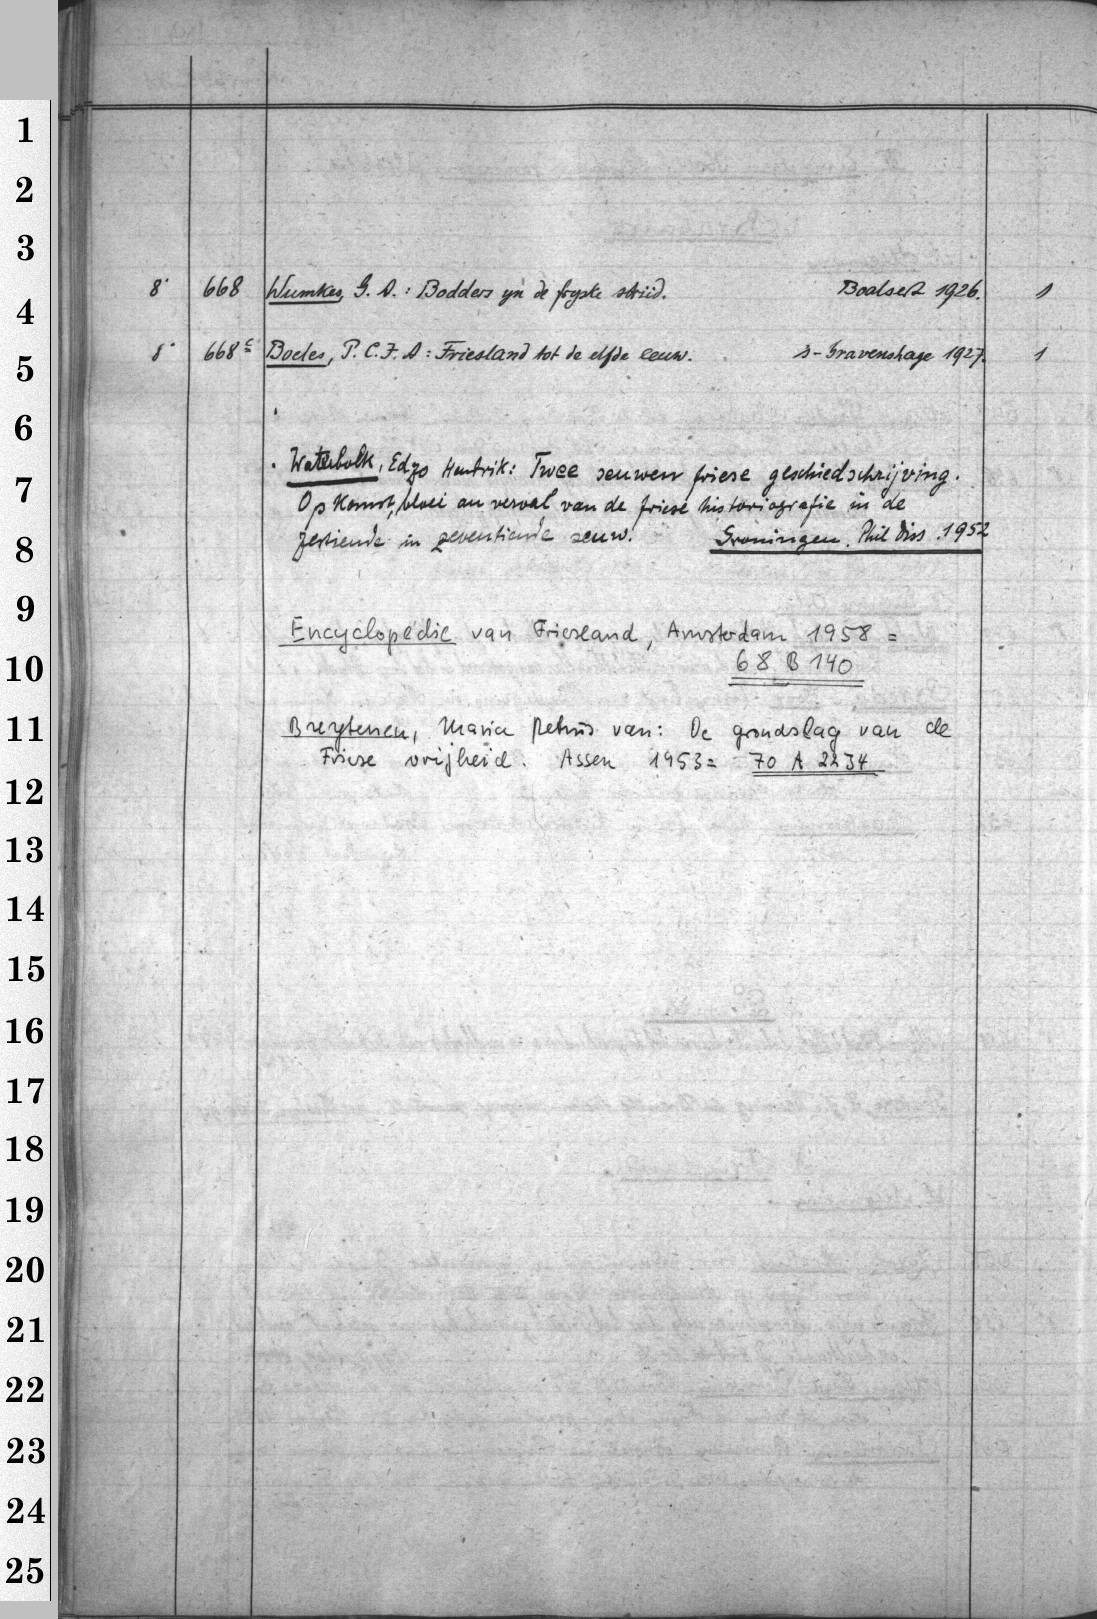 1
2
3
4
5
6
7
8
9
10
11
12
13
14
15
16
17
18
19
20
21
22
23
24
25
8° 668 Wumkes, G. A.: Bodders yn de fryske striid. Boalsert 1926. 1
8° 668 c Boeles, P. C. J. A: Friesland tot de elfde eeuw. s-Gravenshage 1927. 1
. Waterbolk, Edzo Hendrik: Twee eeuwen friese geschiedschrijving.
Opkomst, bloei en verval van de friese historiografie in de
zestiende en zeventiende eeuw. Groningen. Phil Diss. 1952
Encyclopedie van Friesland, Amsterdam 1958 =
68 B 140
Breytenen, Maria Petrus van: De grondslag van de
Friese vrijheid. Assen 1953 = 70 A 2234